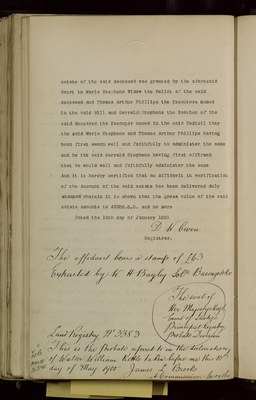 estate of the said deceased was granted by the aforesaid
Court to Maria Stephens Widow the Relict of the said
deceased and Thomas Arthur Phillips the Executors named
in the said Will and Gerrald Stephens the Brother of the
said deceased the Executor named in the said Codicil they
the said Maria Stephens and Thomas Arthur Phillips having
been first sworn well and faithfully to administer the same
and he the said Gerrald Stephens having first affirmed
that he would well and faithfully administer the same
And it is hereby certified that an Affidavit in verification
of the account of the said estate has been delivered duly
stamped wherein it is shown that the gross value of the said
estate amounts to and no more
Dated the day of January
D. H. Owen
Registrar.
The affidavit bears a stamp of £63
Extracted by W. H. Bayly Solr
The seal of
Her Majesty's High
Court of Justice
Principal Registry
Probate Division
Land Registry No 3383
This is the Probate referred to in the declaration
of Walter William taken before me this
day of May 1900 James L.
A Commissioner